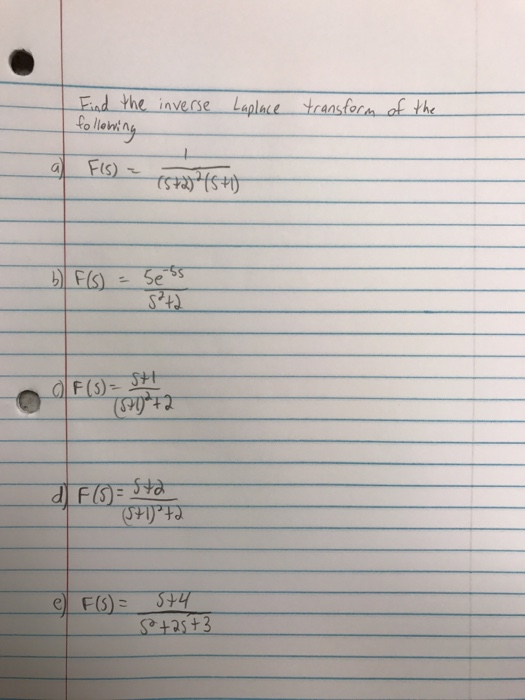 Find the inverse Laplace transform of the
following
a) F(s) = 1/((s+2)²(s+1))
b) F(s) = 5e^(-5s)/(s²+2)
c) F(s) = (s+1)/((s+1)²+2)
d) F(s) = (s+2)/((s+1)²+2)
e) F(s) = (s+4)/(s²+2s+3)